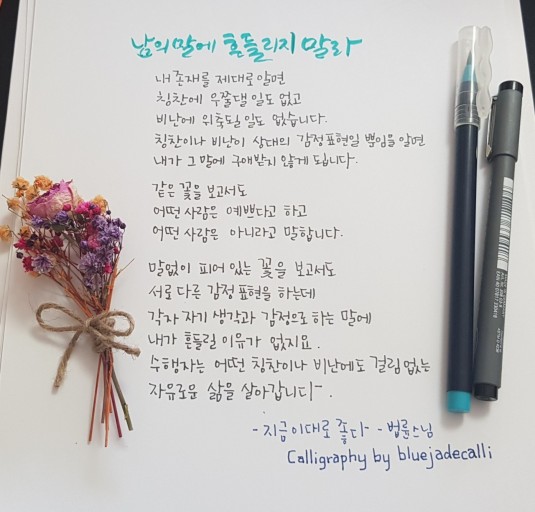 남의 말에 흔들리지 말라
내 존재를 제대로 알면
칭찬에 우쭐댈 일도 없고
비난에 위축될 일도 없습니다.
칭찬이나 비난이 상대의 감정표현일 뿐임을 알면
내가 그 말에 구애받지 않게 됩니다.
같은 꽃을 보고서도
어떤 사람은 예쁘다고 하고
어떤 사람은 아니라고 말합니다.
말없이 피어 있는 꽃을 보고서도
서로 다른 감정 표현을 하는데
각자 자기 생각과 감정으로 하는 말에
내가 흔들릴 이유가 없지요.
수행자는 어떤 칭찬이나 비난에도 걸림없는
자유로운 삶을 살아갑니다.
- 지금 이대로 좋다 - 법륜스님
Calligraphy by bluejadecalli